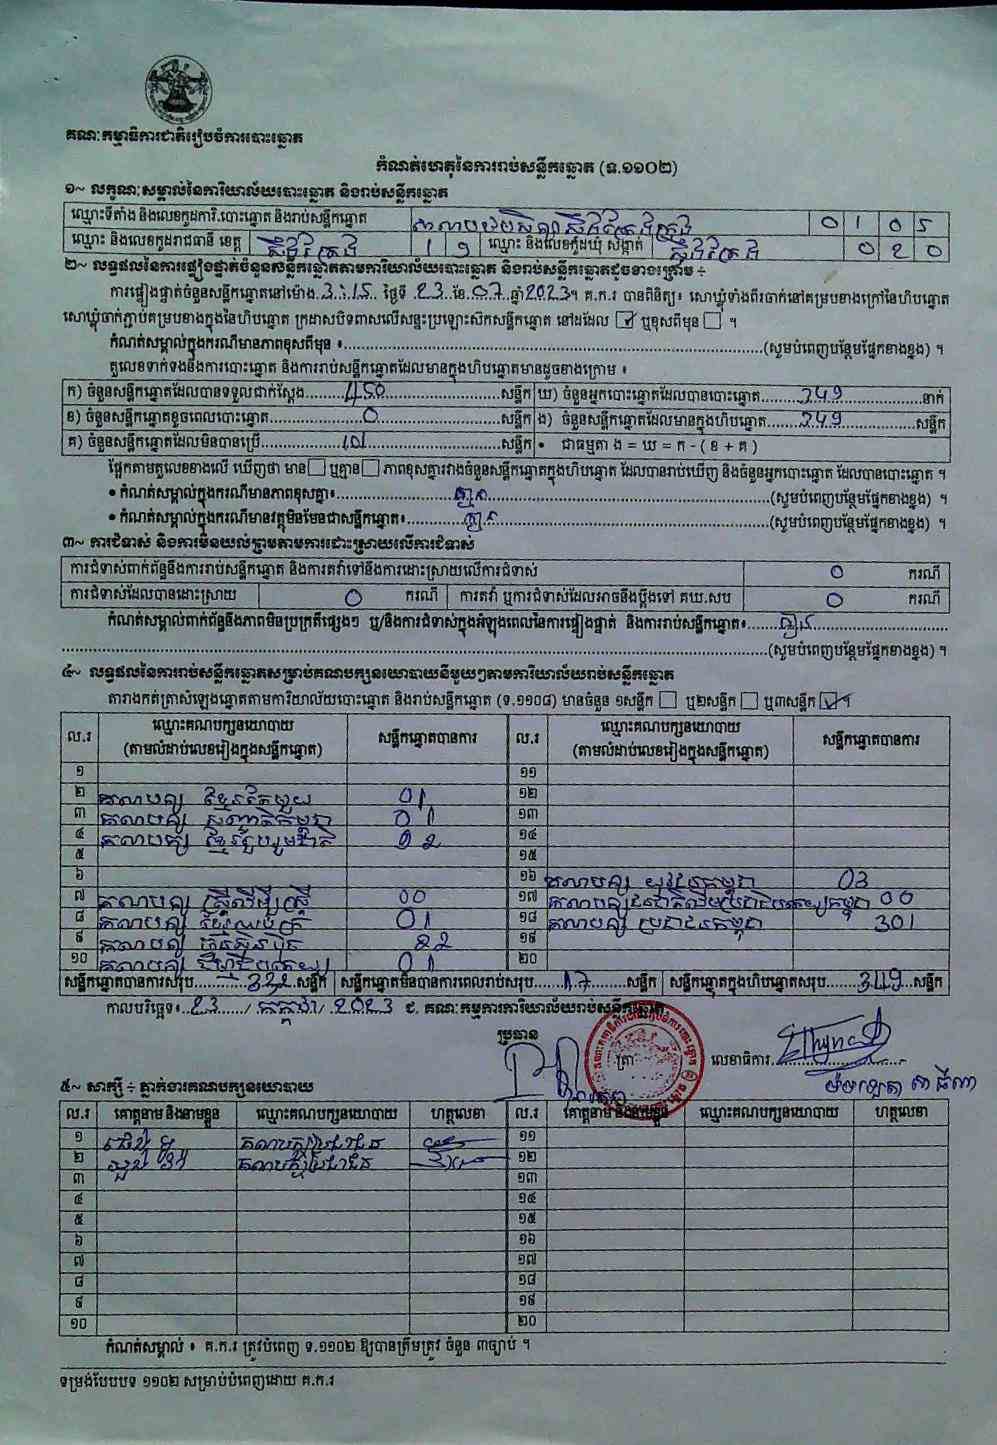 គណៈកម្មាធិការជាតិរៀបចំការបោះឆ្នោត
កំណត់ហេតុនៃការរាប់សន្លឹកឆ្នោត (ទ.១១០២)
១~ លក្ខណៈសម្គាល់នៃការិយាល័យបោះឆ្នោត និងរាប់សន្លឹកឆ្នោត
ឈ្មោះទីតាំង និងលេខកូដការិ.បោះឆ្នោត និងរាប់សន្លឹកឆ្នោត 0 1 0 5
ឈ្មោះ និងលេខកូដរាជធានី ខេត្ត ស្ទឹងត្រែង 1 9 ឈ្មោះ និងលេខកូដឃុំ សង្កាត់ ស្ទឹងត្រែង 0 2 0
២~ លទ្ធផលនៃការផ្ទៀងផ្ទាត់ចំនួនសន្លឹកឆ្នោតតាមការិយាល័យបោះឆ្នោត និងរាប់សន្លឹកឆ្នោតដូចខាងក្រោម ÷
ការផ្ទៀងផ្ទាត់ចំនួនសន្លឹកឆ្នោតនៅម៉ោង 3:15 ថ្ងៃទី 23 ខែ 07 ឆ្នាំ 2023។ គ.ក.រ បានពិនិត្យ៖ សោឃ្មុំទាំងពីរចាក់នៅគម្របខាងក្រៅនៃហិបឆ្នោត
សោឃ្មុំចាក់ភ្ជាប់គម្របខាងក្នុងនៃហិបឆ្នោត ក្រដាសបិទពាសលើសន្ទះប្រឡោះសិកសន្លឹកឆ្នោត នៅដដែល ☑ ឬខុសពីមុន ☐ ។
កំណត់សម្គាល់ក្នុងករណីមានភាពខុសពីមុន ៖ (សូមបំពេញបន្ថែមផ្នែកខាងខ្នង) ។
តួលេខទាក់ទងនឹងការបោះឆ្នោត និងការរាប់សន្លឹកឆ្នោតដែលមានក្នុងហិបឆ្នោតមានដូចខាងក្រោម ៖
ក) ចំនួនសន្លឹកឆ្នោតដែលបានទទួលជាក់ស្តែង 450 សន្លឹក ឃ) ចំនួនអ្នកបោះឆ្នោតដែលបានបោះឆ្នោត 349 នាក់
ខ) ចំនួនសន្លឹកឆ្នោតខូចពេលបោះឆ្នោត 0 សន្លឹក ង) ចំនួនសន្លឹកឆ្នោតដែលមានក្នុងហិបឆ្នោត 349 សន្លឹក
គ) ចំនួនសន្លឹកឆ្នោតដែលមិនបានប្រើ សន្លឹក • ជាធម្មតា ង = ឃ = ក - ( ខ + គ )
ផ្អែកតាមតួលេខខាងលើ ឃើញថា មាន ☐ ឬគ្មាន ☐ ភាពខុសគ្នារវាងចំនួនសន្លឹកឆ្នោតក្នុងហិបឆ្នោត ដែលបានរាប់ឃើញ និងចំនួនអ្នកបោះឆ្នោត ដែលបានបោះឆ្នោត ។
• កំណត់សម្គាល់ក្នុងករណីមានភាពខុសគ្នា៖ គ្មាន (សូមបំពេញបន្ថែមផ្នែកខាងខ្នង) ។
• កំណត់សម្គាល់ក្នុងករណីមានវត្ថុមិនមែនជាសន្លឹកឆ្នោត៖ គ្មាន (សូមបំពេញបន្ថែមផ្នែកខាងខ្នង) ។
៣~ ការជំទាស់ និងការមិនយល់ព្រមតាមការដោះស្រាយលើការជំទាស់
ការជំទាស់ពាក់ព័ន្ធនឹងការរាប់សន្លឹកឆ្នោត និងការតវ៉ាទៅនឹងការដោះស្រាយលើការជំទាស់ 0 ករណី
ការជំទាស់ដែលបានដោះស្រាយ 0 ករណី ការតវ៉ា ឬការជំទាស់ដែលអាចនឹងប្តឹងទៅ គឃ.សប 0 ករណី
កំណត់សម្គាល់ពាក់ព័ន្ធនឹងភាពមិនប្រក្រតីផ្សេងៗ ឬ/និងការជំទាស់ក្នុងអំឡុងពេលនៃការផ្ទៀងផ្ទាត់ និងការរាប់សន្លឹកឆ្នោត៖ គ្មាន
(សូមបំពេញបន្ថែមផ្នែកខាងខ្នង) ។
៤~ លទ្ធផលនៃការរាប់សន្លឹកឆ្នោតសម្រាប់គណបក្សនយោបាយនីមួយៗតាមការិយាល័យរាប់សន្លឹកឆ្នោត
តារាងកត់ត្រាសំឡេងឆ្នោតតាមការិយាល័យបោះឆ្នោត និងរាប់សន្លឹកឆ្នោត (ទ.១១០៨) មានចំនួន ១សន្លឹក ☐ ឬ២សន្លឹក ☐ ឬ៣សន្លឹក ☑ ។
ល.រ ឈ្មោះគណបក្សនយោបាយ (តាមលំដាប់លេខរៀងក្នុងសន្លឹកឆ្នោត) សន្លឹកឆ្នោតបានការ ល.រ ឈ្មោះគណបក្សនយោបាយ (តាមលំដាប់លេខរៀងក្នុងសន្លឹកឆ្នោត) សន្លឹកឆ្នោតបានការ
១ ១១
២ គណបក្ស ខ្មែរតែមួយ 01 ១២
៣ គណបក្ស សញ្ជាតិកម្ពុជា 01 ១៣
៤ គណបក្ស ខ្មែររួបរួមជាតិ ១៤
៥ ១៥
៦ ១៦ គណបក្ស យុវជនកម្ពុជា 03
៧ គណបក្ស ស្ត្រីដើម្បីស្ត្រី 00 ១៧ 00
៨ គណបក្ស ខ្មែរឈប់ក្រ 01 ១៨ គណបក្ស ប្រជាជនកម្ពុជា 301
៩ គណបក្ស ហ្វ៊ុនស៊ិនប៉ិច 22 ១៩
១០ គណបក្ស 01 ២០
សន្លឹកឆ្នោតបានការសរុប 332 សន្លឹក សន្លឹកឆ្នោតមិនបានការពេលរាប់សរុប 17 សន្លឹក សន្លឹកឆ្នោតក្នុងហិបឆ្នោតសរុប 349 សន្លឹក
កាលបរិច្ឆេទ៖ 23 / កក្កដា / 2023 ជ. គណៈកម្មការការិយាល័យរាប់សន្លឹកឆ្នោត
ប្រធាន ត្រា លេខាធិការ
៥~ សាក្សី ÷ ភ្នាក់ងារគណបក្សនយោបាយ
ល.រ គោត្តនាម និងនាមខ្លួន ឈ្មោះគណបក្សនយោបាយ ហត្ថលេខា ល.រ គោត្តនាម និងនាមខ្លួន ឈ្មោះគណបក្សនយោបាយ ហត្ថលេខា
១ គណបក្សប្រជាជន ១១
២ គណបក្សប្រជាជន ១២
៣ ១៣
៤ ១៤
៥ ១៥
៦ ១៦
៧ ១៧
៨ ១៨
៩ ១៩
១០ ២០
កំណត់សម្គាល់ ៖ គ.ក.រ ត្រូវបំពេញ ទ.១១០២ ឱ្យបានត្រឹមត្រូវ ចំនួន ៣ច្បាប់ ។
ទម្រង់បែបបទ ១១០២ សម្រាប់បំពេញដោយ គ.ក.រ